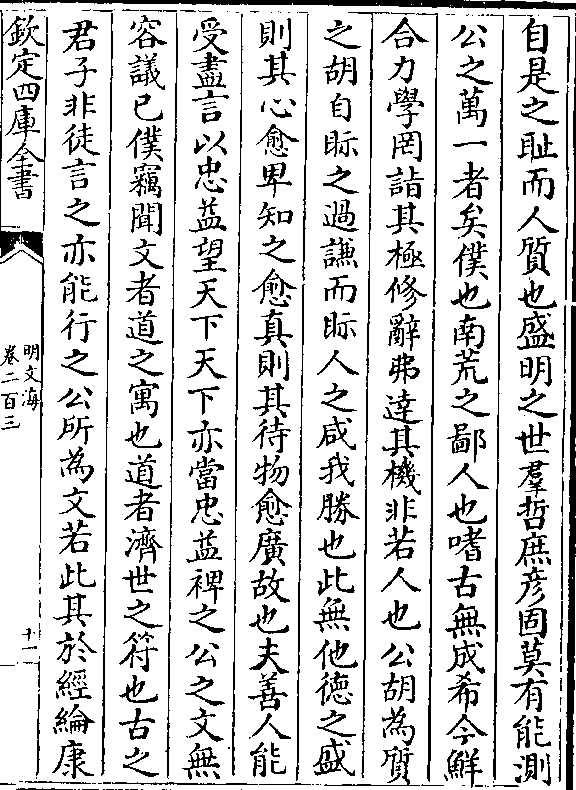 自是之耻而人質也盛明之世羣哲庶彦固莫有能測
公之萬一者矣僕也南荒之鄙人也嗜古無成希今鮮
合力學罔詣其極修辭弗達其機非若人也公胡為質
之胡自眎之過謙而眎人之咸我勝也此無他德之盛
則其心愈卑知之愈真則其待物愈廣故也夫善人能
受盡言以忠益望天下天下亦當忠益裨之公之文無
容議已僕竊聞文者道之寓也道者濟世之符也古之
君子非徒言之亦能行之公所為文若此其於經綸康
欽定四庫全書
明文海
卷二百三
十一